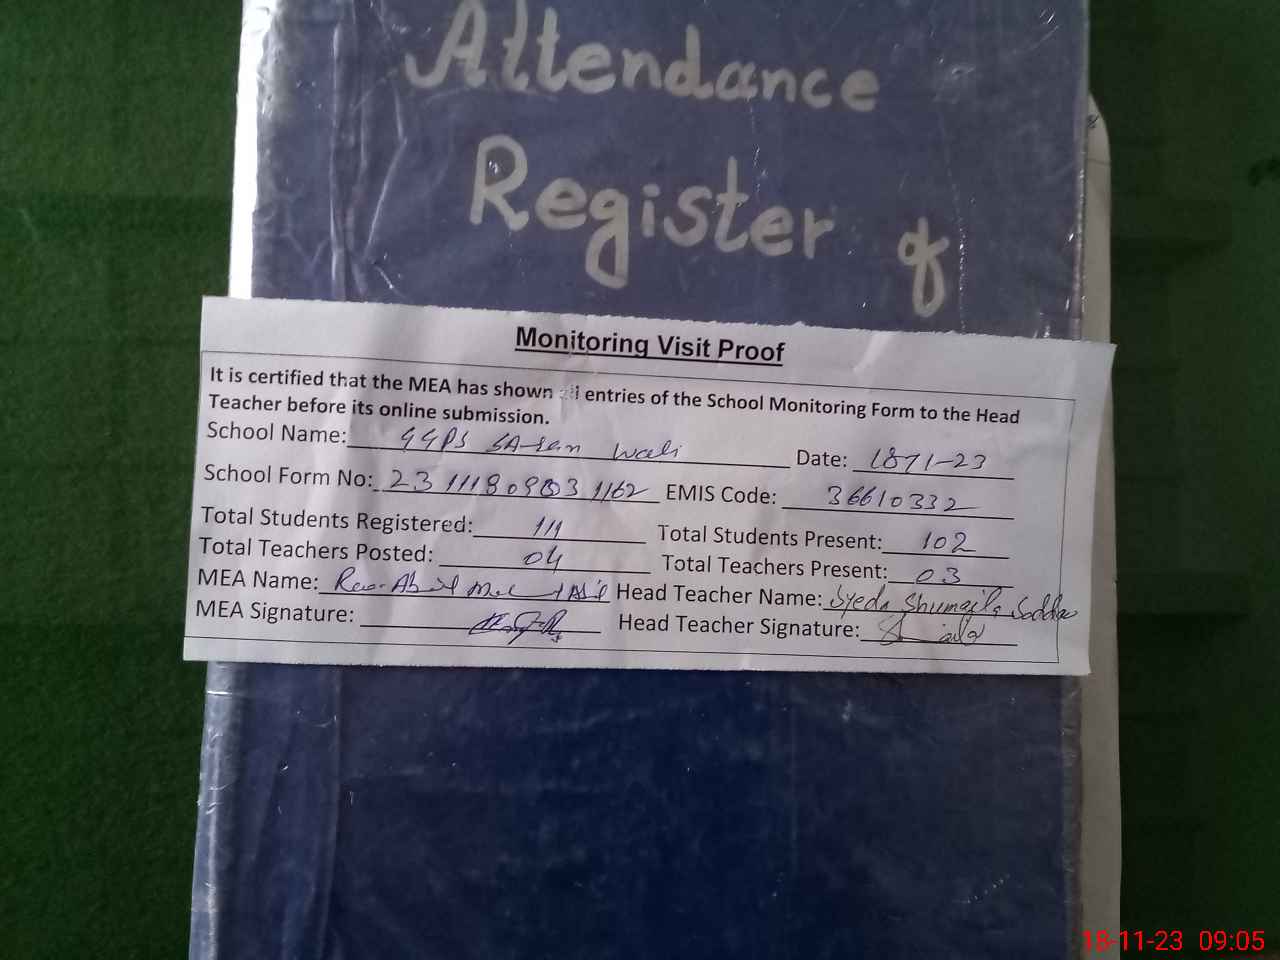 Attendance
Register of
Monitoring Visit Proof
It is certified that the MEA has shown all entries of the School Monitoring Form to the Head
Teacher before its online submission.
School Name: GGPS Wali Date: 18-11-23
School Form No: EMIS Code: 36610332
Total Students Registered: 111 Total Students Present: 102
Total Teachers Posted: 04 Total Teachers Present: 03
MEA Name: Head Teacher Name: Syeda Shumaila
MEA Signature: Head Teacher Signature:
18-11-23 09:05